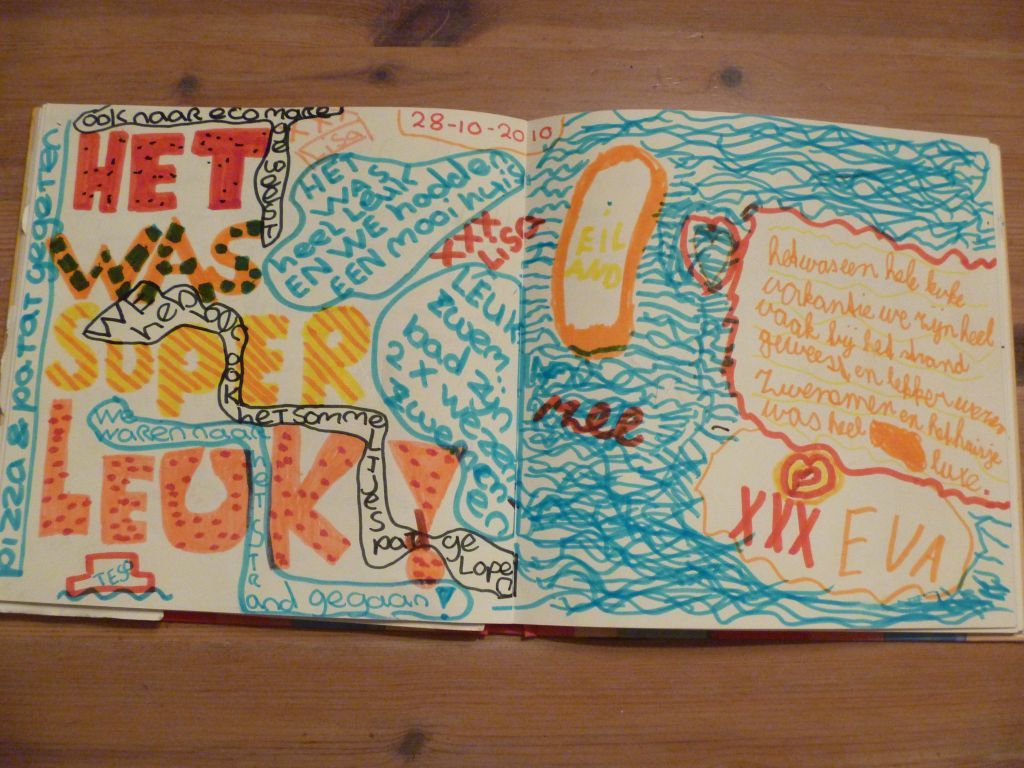 OOK NAAR ECO MARE
GEWEEST
HET
WAS
SUPER
LEUK!
pizza & patat gegeten
28-10-2010
HET
WAS
heel LEUK
EN WE hadden
EEN MOOI
XXX
LISA
LEUK
zwem...
bad zijn
2 X
WE hebben ook
HET SOMMELTJES pat ge
Lopen
We
waren naar
HET STR
and gegaan!
EIL
AND
MEE
het was een hele leuke
vakantie we zijn heel
vaak bij het strand
geweest en lekker wezen
zwemmen en het huisje
was heel luxe.
XXX EVA